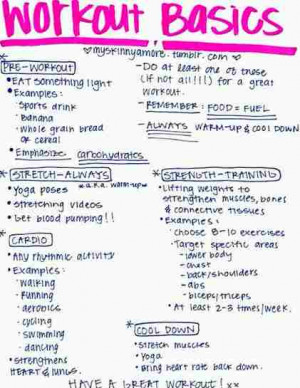 WORKOUT BASICS
♡myskinnyamore.tumblr.com♡
* PRE-WORKOUT
•EAT something light
•Examples:
-Sports drink
-Banana
-Whole grain bread
or cereal
•Emphasize carbohydrates
-DO at least one of these
(if not all!!!) for a great
workout.
-REMEMBER: FOOD = FUEL
-ALWAYS WARM-UP & COOL DOWN
* STRETCH-ALWAYS
*a.k.a. warm-up*
•Yoga poses
•Stretching videos
•Get blood pumping!!
* CARDIO
•Any rhythmic activity
•Examples:
-walking
-running
-aerobics
-cycling
-swimming
-dancing
•Strengthens
HEART & LUNGS.
* STRENGTH-TRAINING
•Lifting weights to
strengthen muscles, bones
& connective tissues
•Examples:
-Choose 8-10 exercises
-Target specific areas
-lower body
-chest
-back/shoulders
-abs
-biceps/triceps
•At least 2-3 times/week.
* COOL DOWN
•Stretch muscles
•Yoga
•Bring heart rate back down.
HAVE A GREAT WORKOUT! xx